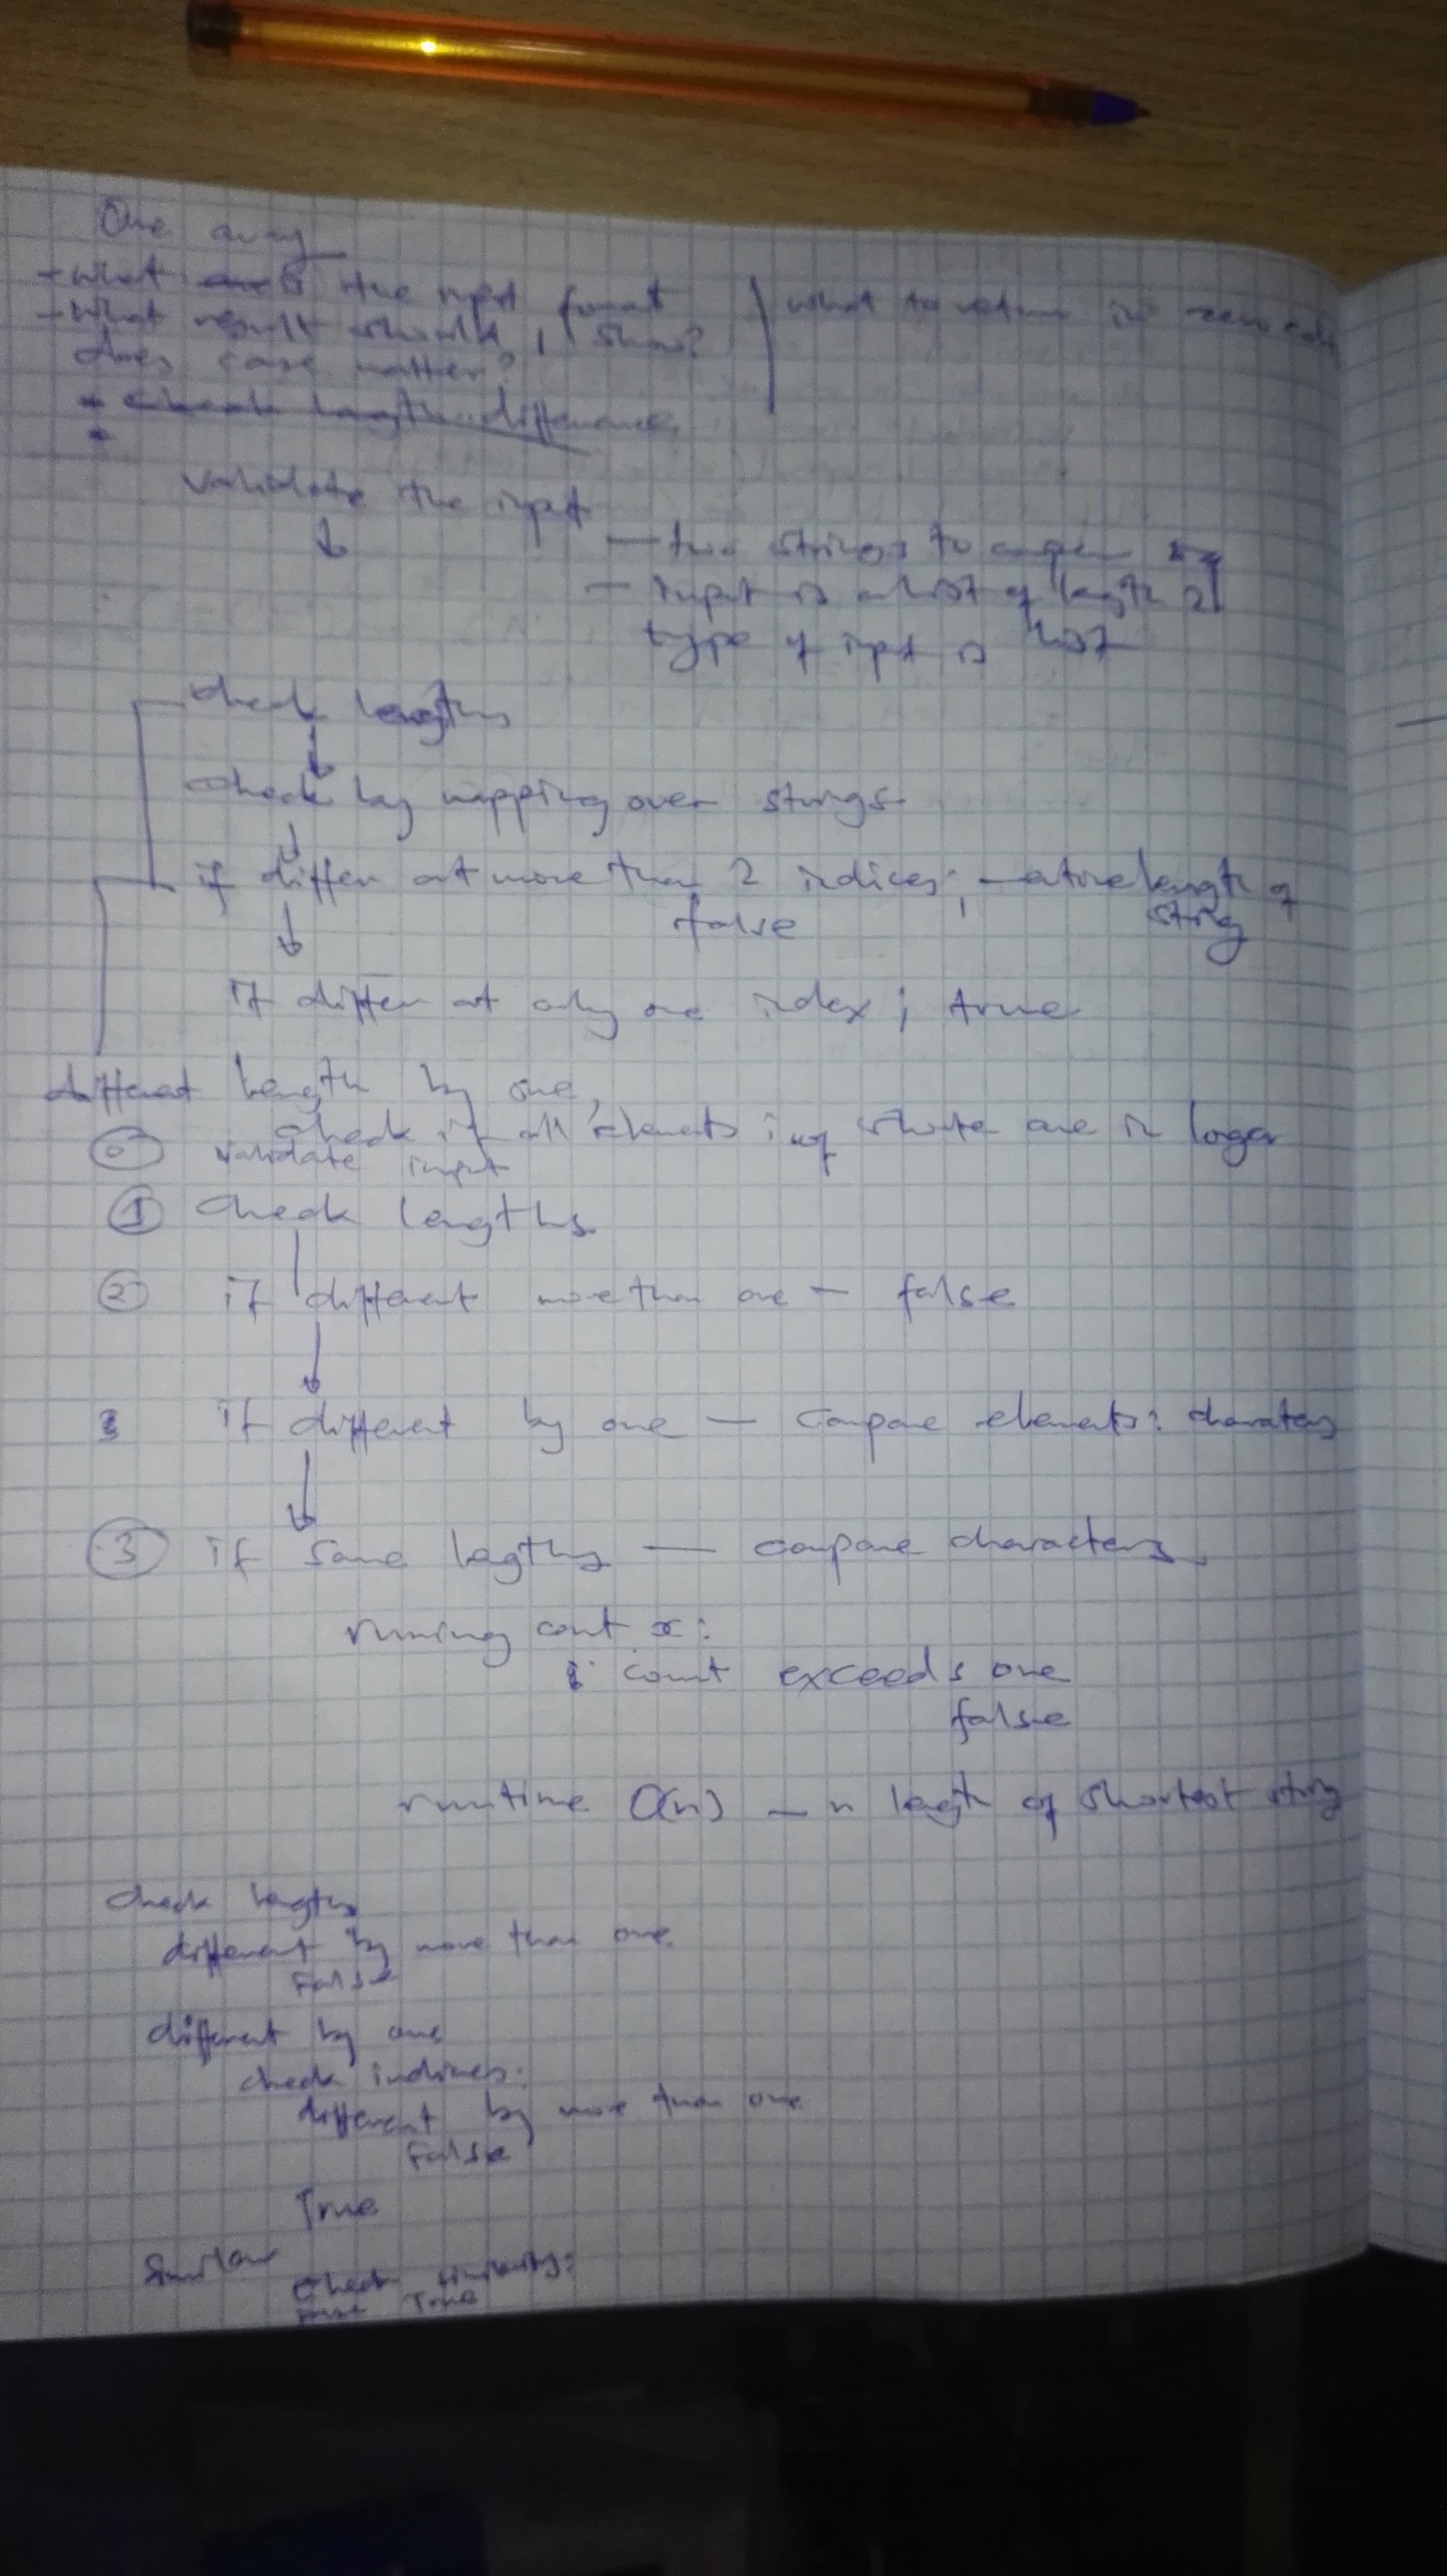 One away
- what are is the input format
- What result should I show?
does case matter?
what to return in
* Check length differences
*
validate the input
↓
— two strings to
— Input is a list of length 2]
type of input is list
check lengths
↓
check by mapping over strings
↓
if differ at more than 2 indices; - entire length of string
false
↓
if differ at only one index; true
different length by one,
check if all elements in of shorter are in longer
0 validate input
1 Check lengths
2 if different more than one — false
↓
3 if different by one — compare elements: characters
↓
3 if same lengths — compare characters
running count x:
count exceeds one
false
runtime O(n) — n length of shortest string
check lengths
different by more than one.
False
different by one
check indices:
different by more than one
False
True
Similar
Check similarity:
True